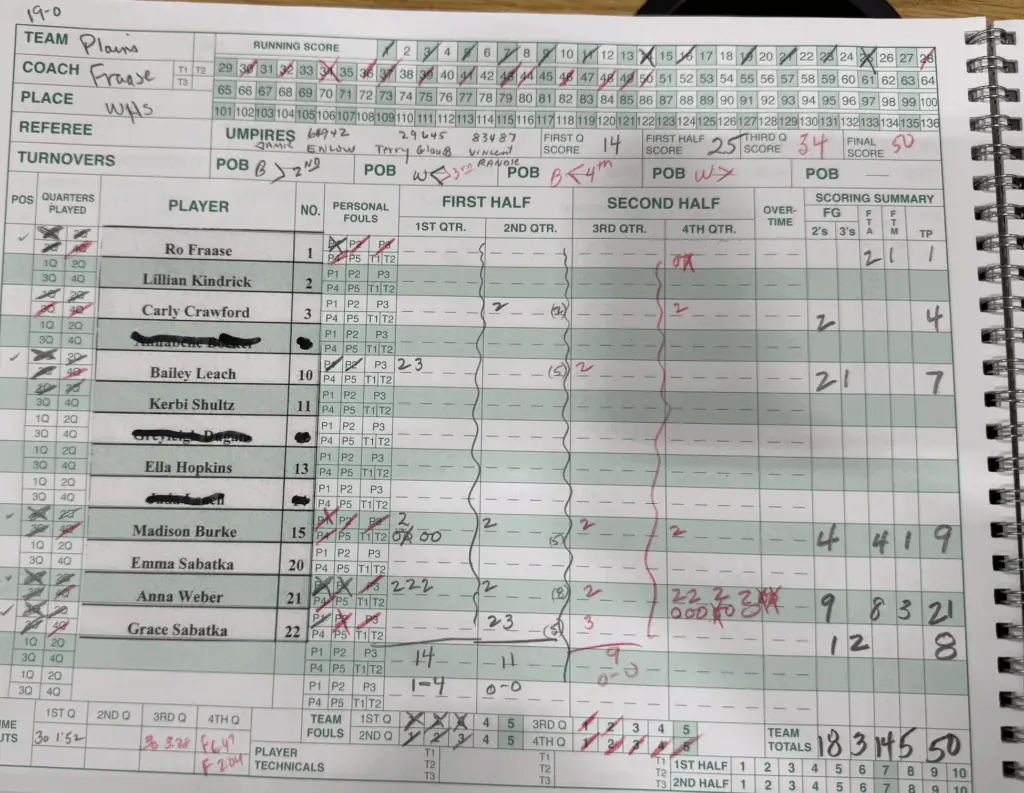 19-0
TEAM Plains
RUNNING SCORE 1 2 3 4 5 6 7 8 9 10 11 12 13 14 15 16 17 18 19 20 21 22 23 24 25 26 27 28
COACH Fraase T1 T2 T3
29 30 31 32 33 34 35 36 37 38 39 40 41 42 43 44 45 46 47 48 49 50 51 52 53 54 55 56 57 58 59 60 61 62 63 64
65 66 67 68 69 70 71 72 73 74 75 76 77 78 79 80 81 82 83 84 85 86 87 88 89 90 91 92 93 94 95 96 97 98 99 100
PLACE WHS
101 102 103 104 105 106 107 108 109 110 111 112 113 114 115 116 117 118 119 120 121 122 123 124 125 126 127 128 129 130 131 132 133 134 135 136
REFEREE
UMPIRES 29645 83487
FIRST Q SCORE 14 FIRST HALF SCORE 25 THIRD Q SCORE 34 FINAL SCORE 50
JAMIE ENLOW Terry Vincent RANDLE
TURNOVERS POB B > 2ND POB W < 3rd POB B < 4th POB W > POB —
POS QUARTERS PLAYED PLAYER NO. PERSONAL FOULS FIRST HALF SECOND HALF OVER-TIME SCORING SUMMARY
1ST QTR. 2ND QTR. 3RD QTR. 4TH QTR. FG 2's 3's FTA FTM TP
Ro Fraase 1 P1 P2 P3 P4 P5 T1 T2 2 1 1
1Q 2Q 3Q 4Q Lillian Kindrick 2 P1 P2 P3 P4 P5 T1 T2
Carly Crawford 3 P1 P2 P3 P4 P5 T1 T2 2 (2) 2 2 4
1Q 2Q 3Q 4Q P1 P2 P3 P4 P5 T1 T2
Bailey Leach 10 P1 P2 P3 P4 P5 T1 T2 2 3 (5) 2 2 1 7
3Q 4Q Kerbi Shultz 11 P1 P2 P3 P4 P5 T1 T2
1Q 2Q 3Q 4Q P1 P2 P3 P4 P5 T1 T2
1Q 2Q 3Q 4Q Ella Hopkins 13 P1 P2 P3 P4 P5 T1 T2
1Q 2Q 3Q 4Q P1 P2 P3 P4 P5 T1 T2
Madison Burke 15 P1 P2 P3 P4 P5 T1 T2 2 2 (5) 2 2 4 4 1 9
1Q 2Q 3Q 4Q Emma Sabatka 20 P1 P2 P3 P4 P5 T1 T2
Anna Weber 21 P1 P2 P3 P4 P5 T1 T2 2 2 2 2 (8) 2 2 2 2 2 9 8 3 21
Grace Sabatka 22 P1 P2 P3 P4 P5 T1 T2 2 3 (5) 3 1 2 8
1Q 2Q 3Q 4Q P1 P2 P3 P4 P5 T1 T2 14 11 9
0-0
1Q 2Q 3Q 4Q P1 P2 P3 P4 P5 T1 T2 1-4 0-0
1ST Q 2ND Q 3RD Q 4TH Q
30 1:52 30 3:28 F 6:47
F 2:04
TEAM FOULS 1ST Q 1 2 3 4 5 3RD Q 1 2 3 4 5
2ND Q 1 2 3 4 5 4TH Q 1 2 3 4 5
TEAM TOTALS 18 3 14 5 50
PLAYER TECHNICALS T1 T2 T3 T1 T2 T3 T1 T2 T3
1ST HALF 1 2 3 4 5 6 7 8 9 10
2ND HALF 1 2 3 4 5 6 7 8 9 10